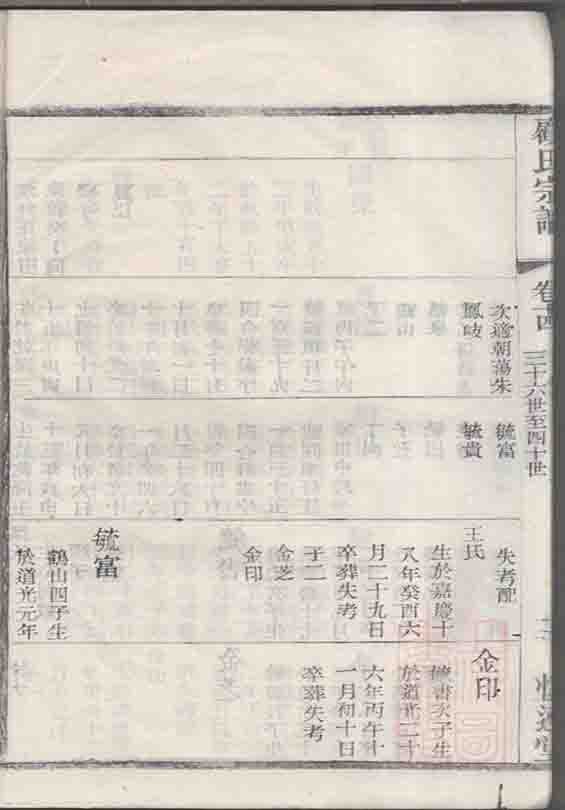 顧氏宗譜
卷十四
三十六世至四十世
次適朝蕩朱
鳳岐
毓富
毓貴
失考配
王氏
生於嘉慶十
八年癸酉六
月二十九日
卒葬失考
子二
金芝
金印
毓富
鶴山四子生
於道光元年
金印
毓書次子生
於道光二十
六年丙午十
一月初十日
卒葬失考